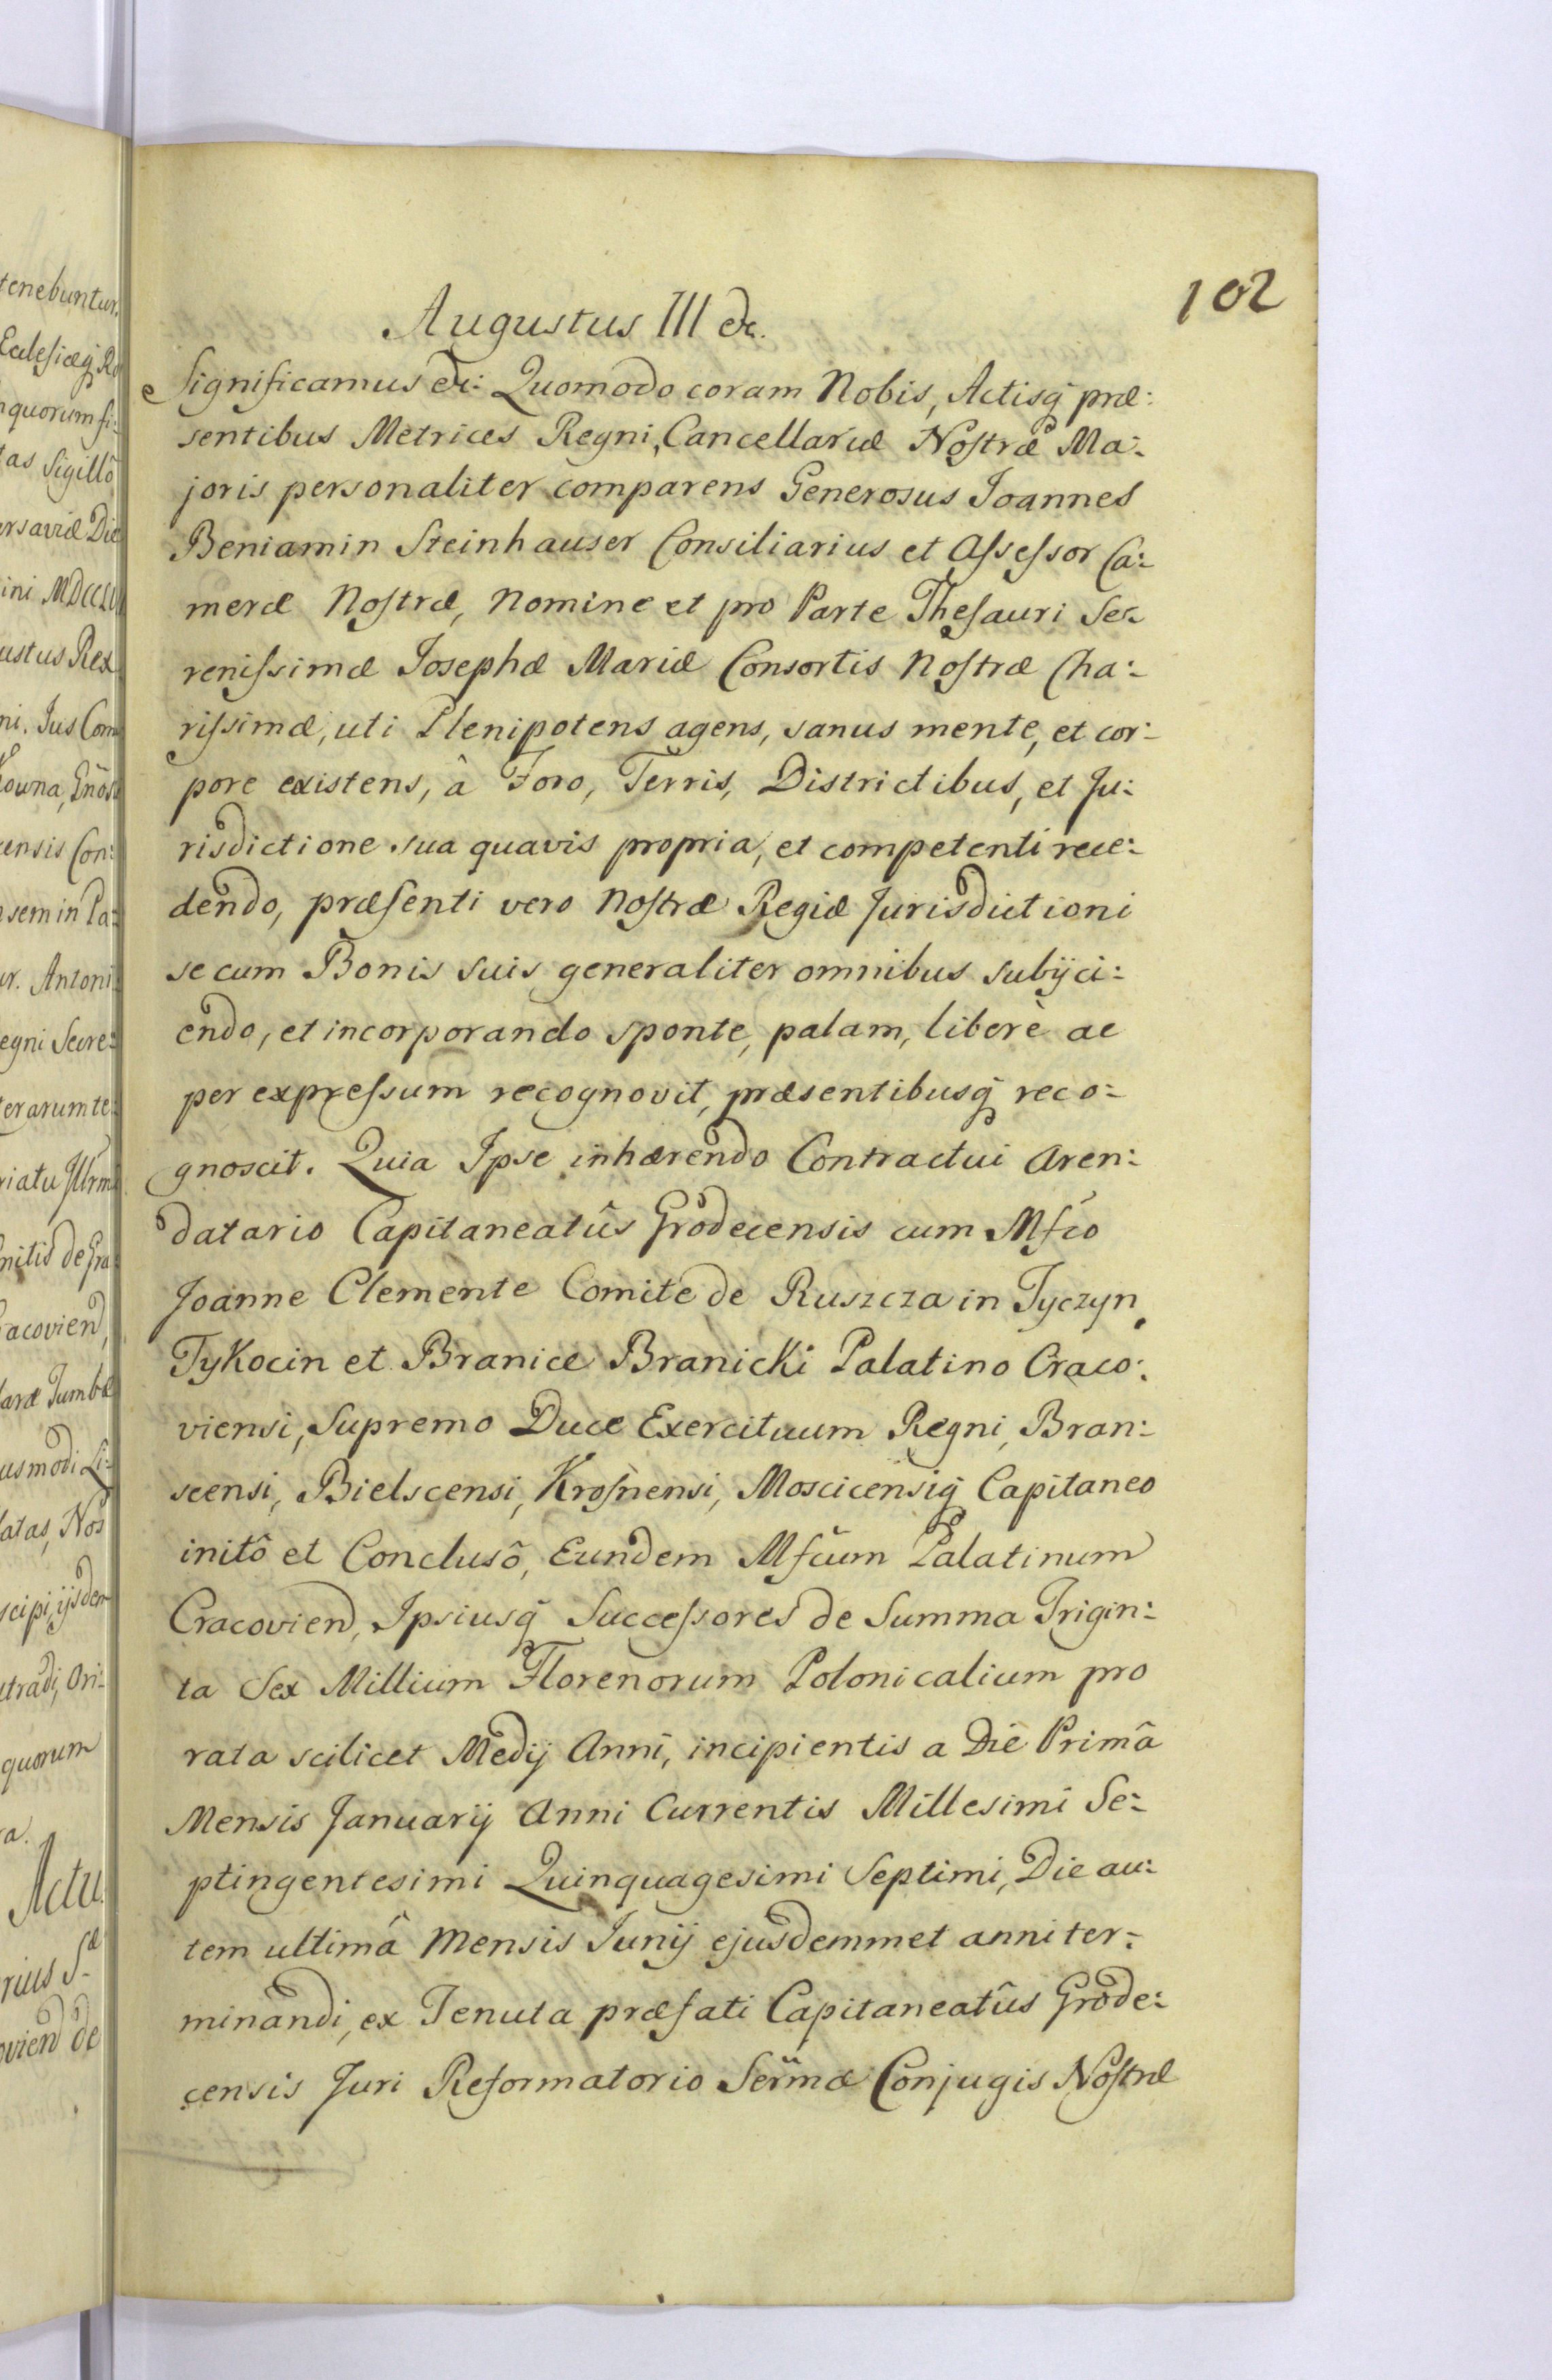 102
Augustus III &c.
Significamus &c: Quomodo coram Nobis, Actisq́ præ:
sentibus Metrices Regni, Cancellariæ Nostræ Ma:
joris personaliter comparens Generosus Joannes
Beniamin Steinhauser Consiliarius et Assessor Ca:
meræ Nostræ, nomine et pro Parte Thesauri Se:
renissimæ Josephæ Mariæ Consortis Nostræ Cha:
rissimæ, uti Plenipotens agens, sanus mente, et cor:
pore existens, â Foro, Terris, Districtibus, et Ju:
risdictione sua quavis propria, et competenti rece:
dendo, præsenti vero Nostræ Regiæ Jurisdictioni
se cum Bonis suis generaliter omnibus subijci:
endo, et incorporando sponte, palam, liberè ac
per expressum recognovit, præsentibusq́ reco:
gnoscit. Quia Ipse inhærendo Contractui Aren:
datario Capitaneatûs Grodecensis cum Mfco
Joanne Clemente Comite de Ruszcza in Tyczyn,
Tykocin et Branice Branicki Palatino Craco:
viensi, Supremo Duce Exercituum Regni, Bran:
scensi, Bielscensi, Krosnensi, Moscicensiq́ Capitaneo
initô et Conclusô, Eundem Mfcum Palatinum
Cracovien, Ipsiusq́ Successores de Summa Trigin:
ta Sex Millium Florenorum Polonicalium pro
rata scilicet Medij Anni, incipientis a Die Primâ
Mensis Januarij Anni Currentis Millesimi Se:
ptingentesimi Quinquagesimi Septimi, Die au:
tem ultimâ Mensis Junij ejusdemmet anni ter:
minandi, ex Tenuta præfati Capitaneatûs Grode:
censis Juri Reformatorio Serm̃æ Conjugis Nostræ
tenebuntur.
quorum si:
tas Sigillô
ustus Rex
ensis Con:
sem in Pa:
r. Antoni
egni Secre:
erarum te:
acovien,
usmodi Li:
latas, Nos
quorum
Actu